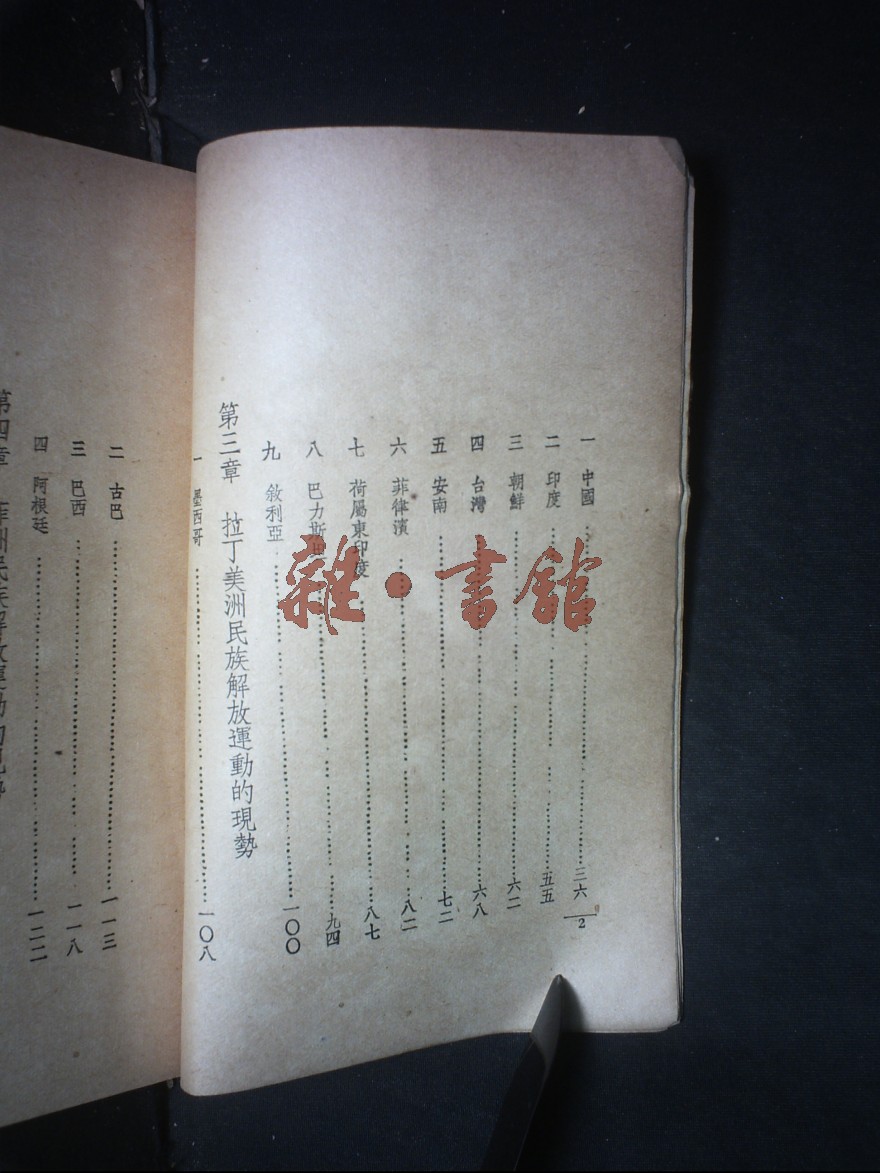 一 中國 三六
二 印度 五五
三 朝鮮 六二
四 台灣 六八
五 安南 七二
六 菲律濱 八二
七 荷屬東印度 八七
八 巴力斯坦 九四
九 敘利亞 一〇〇
第三章 拉丁美洲民族解放運動的現勢
一 墨西哥 一〇八
二 古巴 一一三
三 巴西 一一八
四 阿根廷 一二二
第四章 非洲民族解放運動的現勢
2
雜·書館